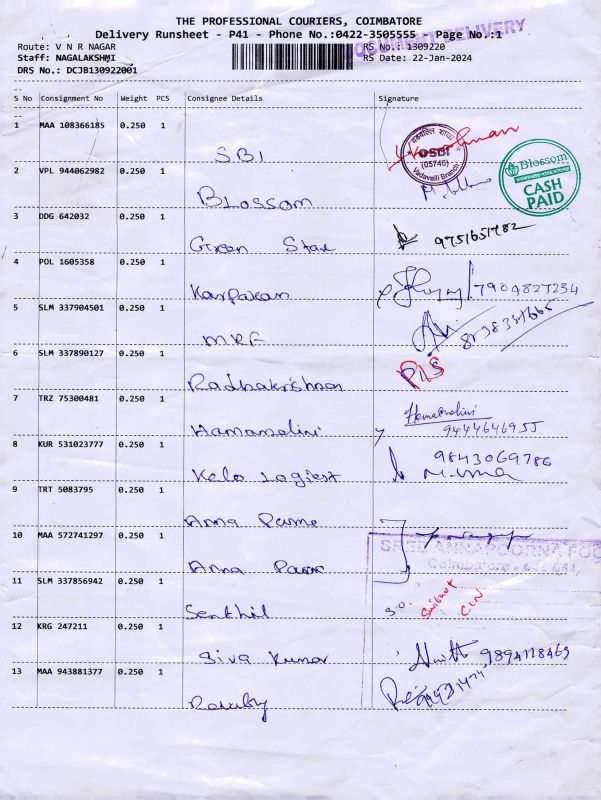 THE PROFESSIONAL COURIERS, COIMBATORE
DOCUMENT DELIVERY
Delivery Runsheet - P41 - Phone No.:0422-3505555 - Page No.:1
Route: V N R NAGAR
RS No.: 1309220
Staff: NAGALAKSHMI
RS Date: 22-Jan-2024
DRS No.: DCJB130922001
S No Consignment No Weight PCS Consignee Details Signature
1 MAA 108366185 0.250 1 SBI
SBI
(05740)
Vadavalli Branch
2 VPL 944062982 0.250 1 BLossom
Blossom
CASH
PAID
3 DDG 642032 0.250 1 Green Star
9751651782
4 POL 1605358 0.250 1 Karpakam
7904827234
5 SLM 337904501 0.250 1 MRF
6 SLM 337890127 0.250 1 Radhakrishnan
7 TRZ 75300481 0.250 1 Hamamalini
Hemamalini
9444646955
8 KUR 531023777 0.250 1 Kelo Logiest
9843069786
M. Uma
9 TRT 5083795 0.250 1 Anna Purne
10 MAA 572741297 0.250 1 Anna
SREE ANNAPOORNA FOO
Coimbatore - 641
11 SLM 337856942 0.250 1 Senthil
12 KRG 247211 0.250 1 Siva Kumar
9894118469
13 MAA 943881377 0.250 1